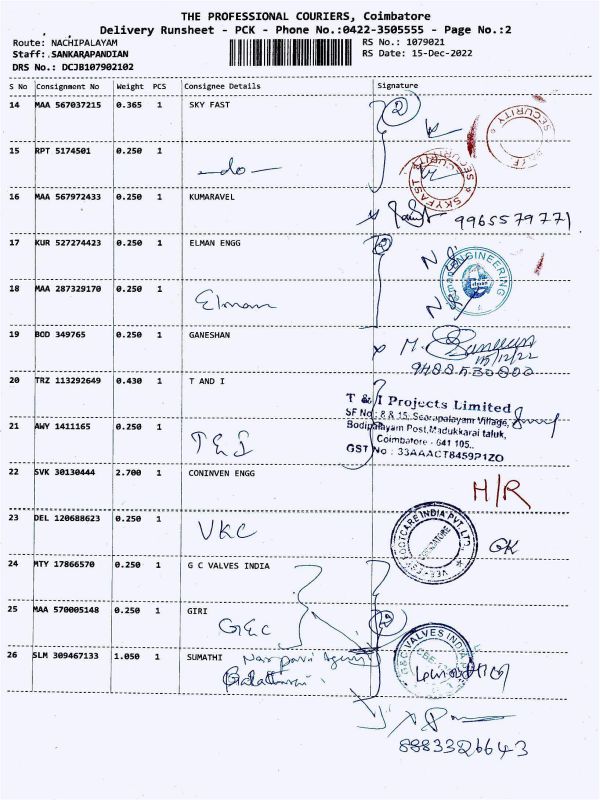 THE PROFESSIONAL COURIERS, Coimbatore
Delivery Runsheet - PCK - Phone No.:0422-3505555 - Page No.:2
Route: NACHIPALAYAM RS No.: 1079021
Staff: SANKARAPANDIAN RS Date: 15-Dec-2022
DRS No.: DCJB107902102
S No Consignment No Weight PCS Consignee Details Signature
14 MAA 567037215 0.365 1 SKY FAST 2
SECURITY
15 RPT 5174501 0.250 1 -do-
SKYFAST SECURITY
16 MAA 567972433 0.250 1 KUMARAVEL
9965579771
17 KUR 527274423 0.250 1 ELMAN ENGG 2
ENGINEERING
18 MAA 287329170 0.250 1 Elman
19 BOD 349765 0.250 1 GANESHAN
15/12/22
20 TRZ 113292649 0.430 1 T AND I
T & I Projects Limited
SF No : 8 & 15, Seerapalayam Village,
21 AWY 1411165 0.250 1 T & I
Bodipalayam Post, Madukkarai taluk,
Coimbatore - 641 105.
GST No : 33AAACT8459P1ZO
22 SVK 30130444 2.700 1 CONINVEN ENGG
H/R
23 DEL 120688623 0.250 1 VKC
VEEKESY FOOTCARE INDIA PVT. LTD.
COIMBATORE
GK
24 MTY 17866570 0.250 1 G C VALVES INDIA
25 MAA 570005148 0.250 1 GIRI 2
GEC
G&C VALVES INDIA
26 SLM 309467133 1.050 1 SUMATHI
8883326643